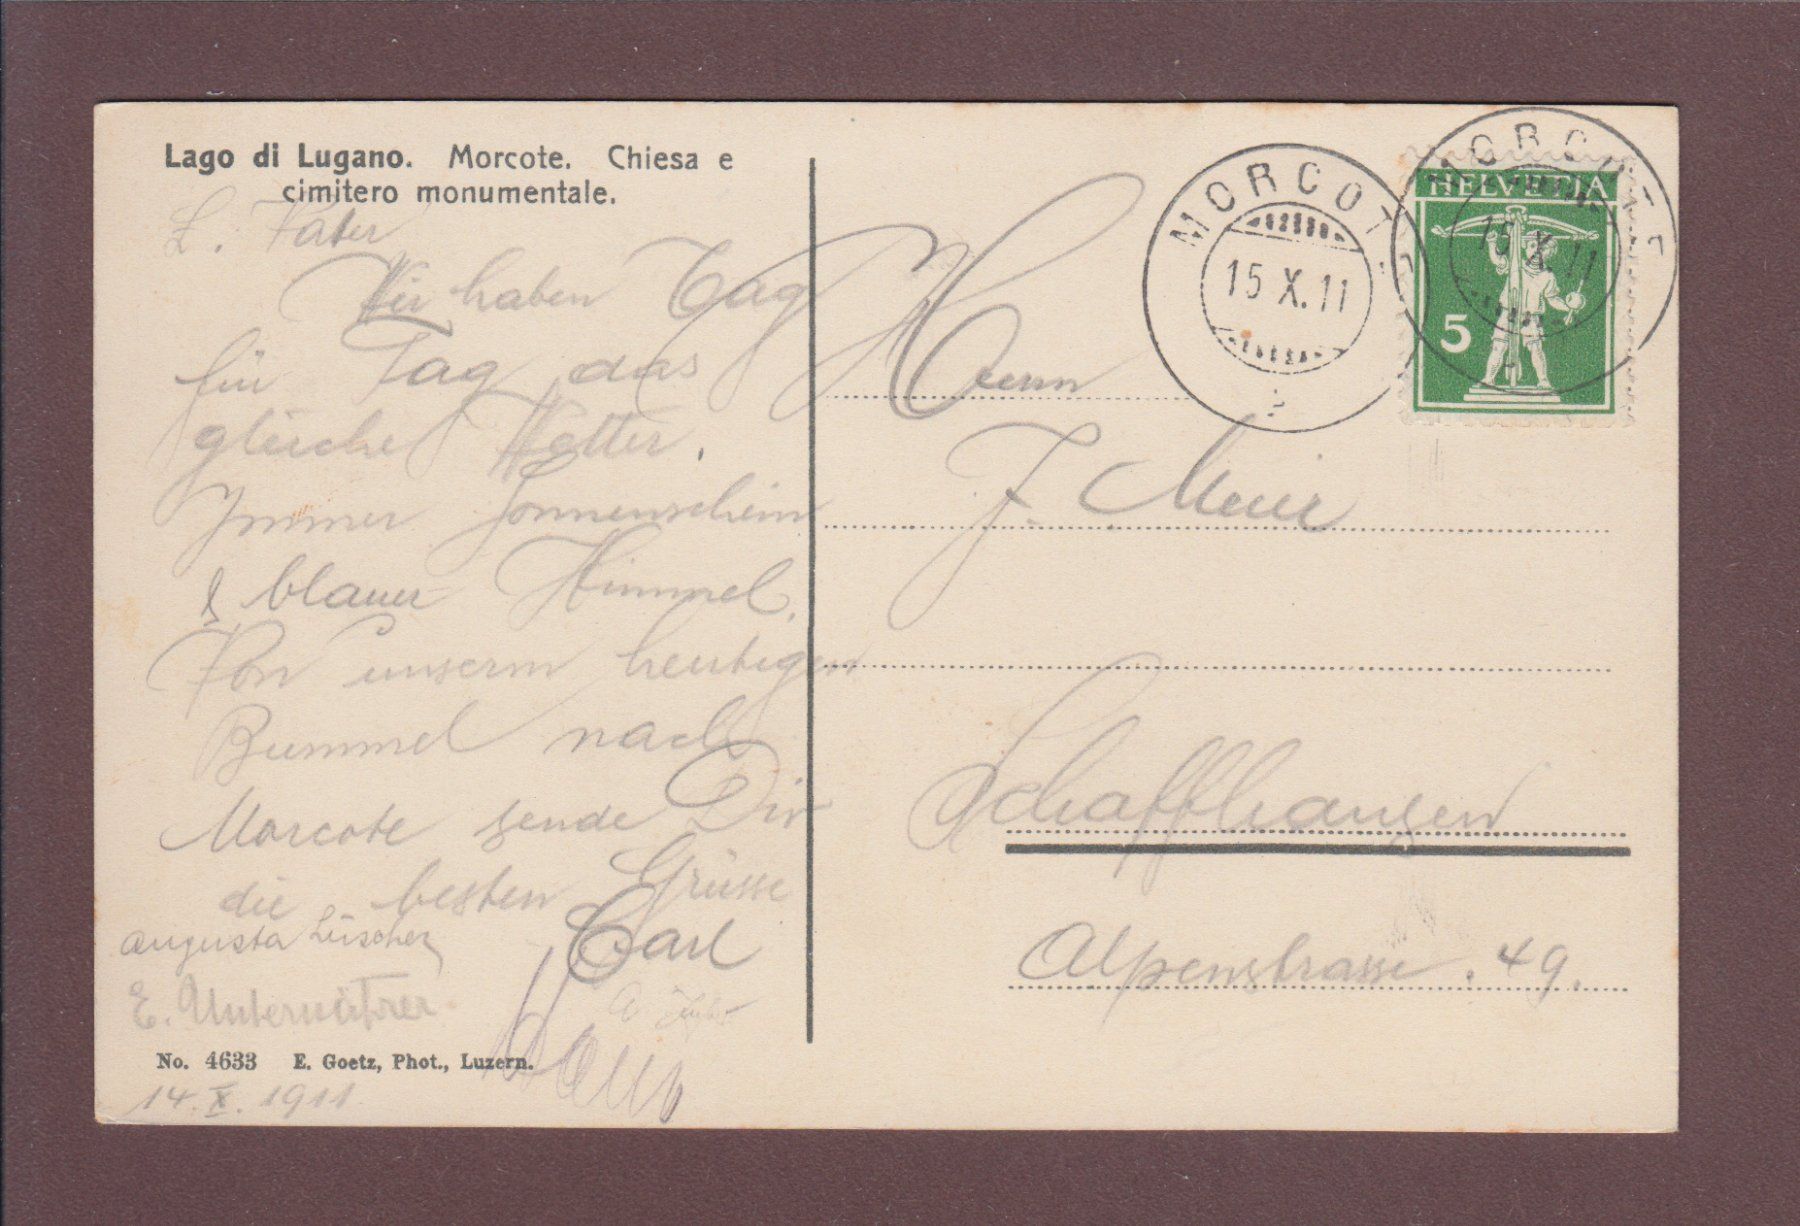 Lago di Lugano. Morcote. Chiesa e
cimitero monumentale.
L. Vater
Wir haben Tag
für Tag das
gleiche Wetter.
Immer Sonnenschein
& blauer Himmel.
Von unserm heutigen
Bummel nach
Morcote sende Dir
die besten Grüsse
Carl
Augusta Lüscher
E. Unternährer
No. 4633 E. Goetz, Phot., Luzern.
14. X. 1911
MORCOTE
15 X. 11
MORCOTE
15 X. 11
HELVETIA
5
Herrn
J. Meier
Schaffhausen
Alpenstrasse. 49.